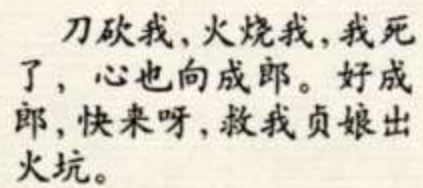 刀砍我,火烧我,我死
了,心也向成郎。好成
郎,快来呀,救我贞娘出
火坑。